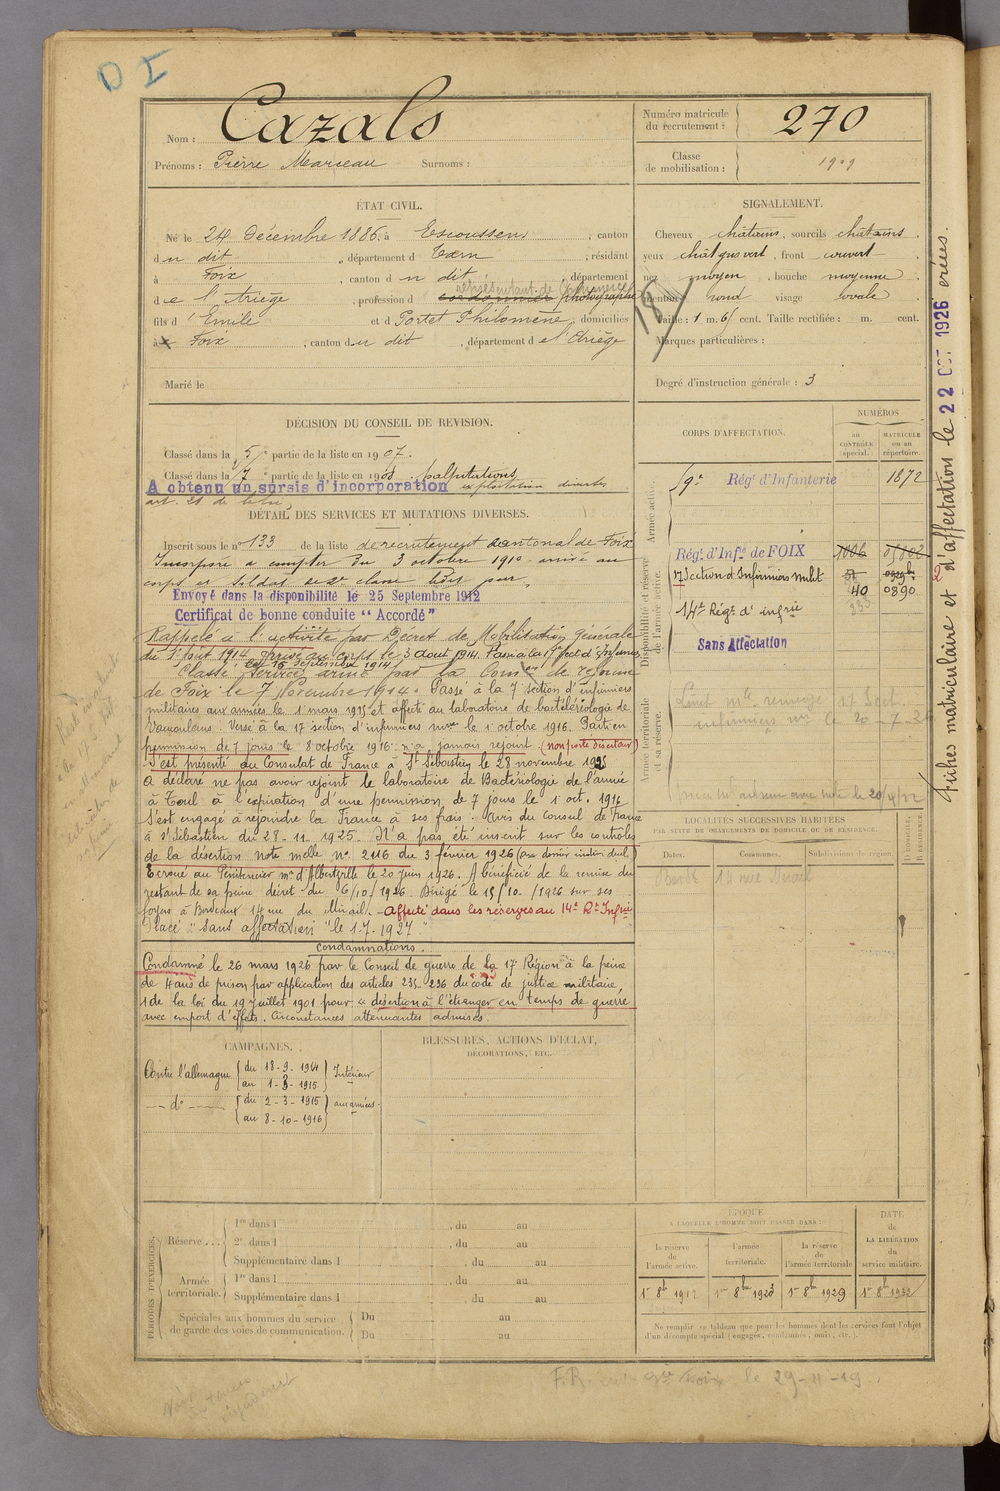 D I
Nom : Cazals
Prénoms : Pierre Marceau Surnoms :
Numéro matricule
du recrutement : 270
Classe
de mobilisation : 1909
ÉTAT CIVIL.
Né le 24 Décembre 1886, à Escoussens, canton
du dit, département d Tarn, résidant
à Foix, canton du dit, département
de l'Ariège, profession d cordonnier photographe
représentant de commerce
fils d'Emile et d Portet Philomène, domiciliés
à Foix, canton du dit, département de l'Ariège
Marié le
SIGNALEMENT.
Cheveux châtains, sourcils châtains
yeux chât gris vert, front couvert
nez moyen, bouche moyenne
menton rond visage ovale
Taille : 1 m. 61 cent. Taille rectifiée : m. cent.
Marques particulières :
Degré d'instruction générale : 3
DÉCISION DU CONSEIL DE REVISION.
Classé dans la 5 partie de la liste en 1907.
Classé dans la 7 partie de la liste en 1908 palpitations
A obtenu un sursis d'incorporation exploitation diverses
art. 21 de la loi
DÉTAIL DES SERVICES ET MUTATIONS DIVERSES.
Inscrit sous le n° 133 de la liste de recrutement cantonal de Foix
Incorporé à compter du 3 octobre 1910 arrivé au
corps et soldat de 2e classe ledit jour
Envoyé dans la disponibilité le 25 Septembre 1912
Certificat de bonne conduite "Accordé"
Rappelé à l'activité par Décret de Mobilisation Générale
du 1er Aout 1914 arrivé au corps le 3 aout 1914. Passé à la 17e sect d'Infirmiers
le 15 septembre 1914
Classé service armé par la Comon de réforme
de Foix le 7 Novembre 1914. Passé à la 7 section d'infirmiers
militaires aux armées le 1 mars 1915 et affecté au laboratoire de bactériologie de
Vaucouleurs. Versé à la 17 section d'infirmiers mres le 1 octobre 1916. Parti en
permission de 7 jours le 8 octobre 1916 n'a jamais rejoint (non porté déserteur)
S'est présenté au Consulat de France à St Sébastien le 28 novembre 1925
a déclaré ne pas avoir rejoint le laboratoire de Bactériologie de l'armée
à Toul à l'expiration d'une permission de 7 jours le 1 oct. 1916
S'est engagé à rejoindre la France à ses frais. Avis du Consul de France
à St Sébastien du 28-11-1925. N'a pas été inscrit sur les contrôles
de la désertion note melle N° 2116 du 3 février 1926 (au dossier individuel)
Ecroué au Pénitencier mre d'Albertville le 20 juin 1926. A bénéficié de la remise du
restant de sa peine décret du 6/10/1926. Dirigé le 15/10/1926 sur ses
foyers à Bordeaux 14 rue du Mirail. Affecté dans les réserves au 14e Rt Infrie
Placé "Sans affectation" le 1.7.1927
Condamnations.
Condamné le 26 mars 1926 par le Conseil de guerre de la 17e Région à la peine
de 4 ans de prison par application des articles 235. 236 du code de justice militaire,
1 de la loi du 19 juillet 1901 pour "désertion à l'étranger en temps de guerre
avec emport d'effets. Circonstances atténuantes admises.
CORPS D'AFFECTATION.
NUMÉROS
au contrôle spécial.
MATRICULE ou au répertoire.
Armée active.
9e Régt d'Infanterie 1872
Disponibilité et réserve de l'armée active.
Régt d'Infie de FOIX 1006
17 Section d'Infirmiers milit
40 0890
14e Régt d'infrie
Sans Affectation
Armée territoriale et sa réserve.
LOCALITÉS SUCCESSIVES HABITÉES
PAR SUITE DE CHANGEMENTS DE DOMICILE OU DE RÉSIDENCE.
Dates. Communes. Subdivisions de région. D. DOMICILE, R. RÉSIDENCE.
Bordx 14 rue Mirail
fiches matriculaire et d'affectation le 22 OCT 1926 créées.
CAMPAGNES.
Contre l'allemagne du 18-9-1914 au 1-3-1915 Intérieur
d° du 2-3-1915 au 8-10-1916 aux armées.
BLESSURES, ACTIONS D'ÉCLAT,
DÉCORATIONS, ETC.
PÉRIODES D'EXERCICES.
Réserve... 1re dans l , du au
2e dans l , du au
Supplémentaire dans l , du au
Armée territoriale. 1re dans l , du au
Supplémentaire dans l , du au
Spéciales aux hommes du service
de garde des voies de communication. Du au
Du au
ÉPOQUE
A LAQUELLE L'HOMME DOIT PASSER DANS :
la réserve de l'armée active. l'armée territoriale. la réserve de l'armée territoriale
DATE de LA LIBÉRATION du service militaire.
1er 8bre 1912 1er 8bre 1923 1er 8bre 1929 1er 8bre 1932
Ne remplir ce tableau que pour les hommes dont les services font l'objet
d'un décompte spécial (engagés, condamnés, omis, etc.).
Foix le 29-11-19